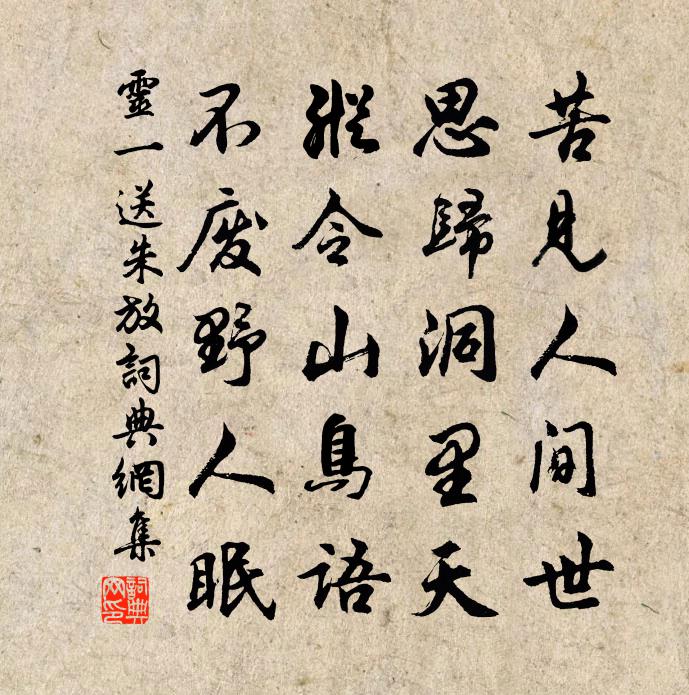 苦見人間世
思歸洞里天
縱令山鳥語
不廢野人眠
靈一送朱放詞典網集
詞典網印